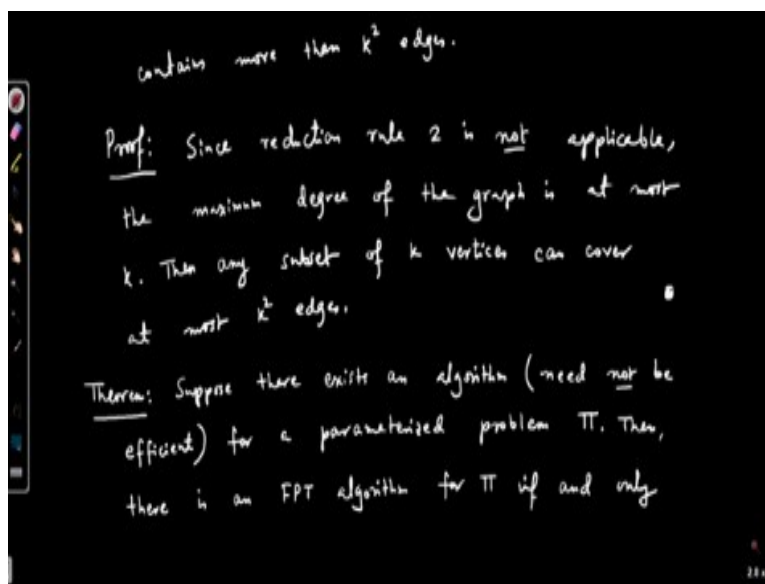 contains more than k² edges.
Proof: Since reduction rule 2 is not applicable,
the maximum degree of the graph is at most
k. Then any subset of k vertices can cover
at most k² edges.
Theorem: Suppose there exists an algorithm (need not be
efficient) for a parameterized problem Π. Then,
there is an FPT algorithm for Π if and only